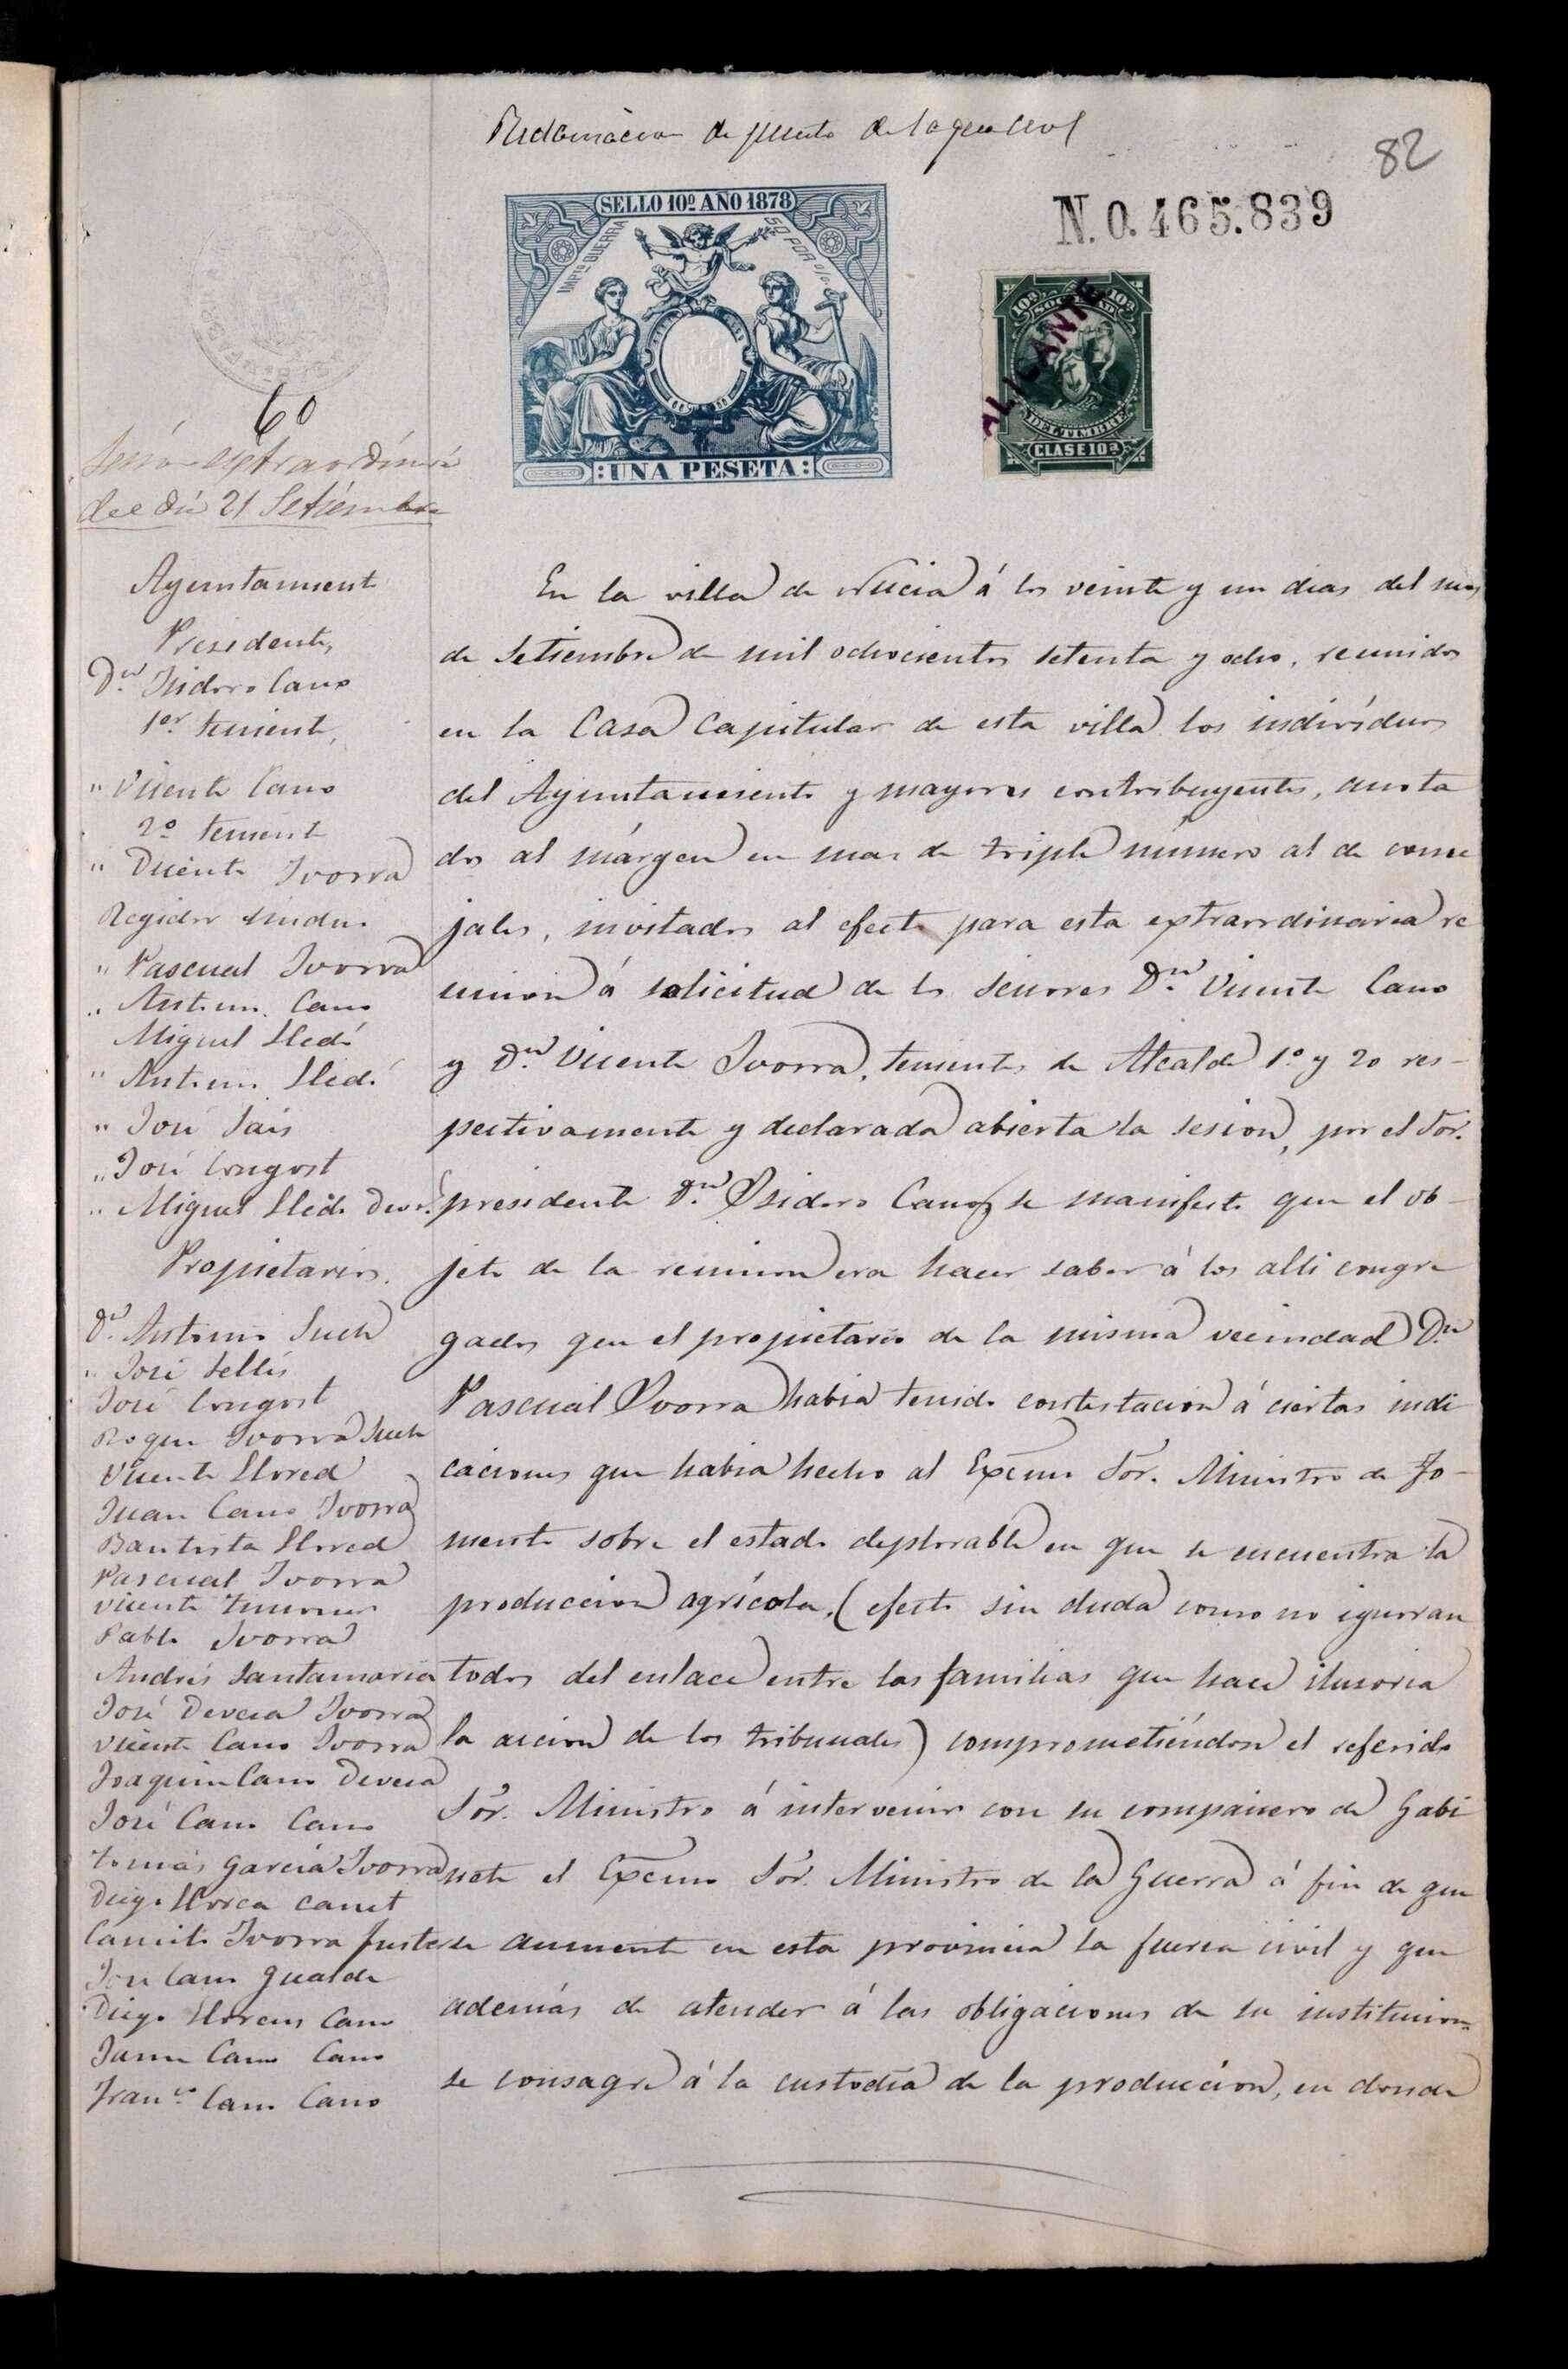 Reclamacion de puesto de la guardia civil
82
SELLO 10º AÑO 1878
IMPTO GUERRA
50 POR %
UNA PESETA
N. 0.465.839
10ª SOCIEDAD 10ª
DEL TIMBRE
CLASE 10ª
ALICANTE
60
Sesión extraordinaria
del día 21 Setiembre
Ayuntamiento
Presidente,
Dn. Isidoro Cano
1er. teniente,
" Vicente Cano
2º teniente
" Vicente Ivorra
Regidor síndico
" Pascual Ivorra
" Antonio Cano
Miguel Lledó
" Antonio Lledó
" José Sais
" José Congost
" Miguel Lledó Devª.
Propietarios.
Dn. Antonio Such
" José Sellés
José Congost
Roque Ivorra Such
Vicente Llored
Juan Cano Ivorra
Bautista Llored
Pascual Ivorra
Vicente
Pablo Ivorra
Andrés Santamaria
José Devesa Ivorra
Vicente Cano Ivorra
Joaquin Cano Devesa
José Cano Cano
Tomás García Ivorra
Diego Llorca Canet
Camilo Ivorra Fuster
José Cano Gualde
Diego Llorens Cano
Jaime Cano Cano
Franco. Cano Cano
En la villa de Nucia á los veinte y un dias del mes
de Setiembre de mil ochocientos setenta y ocho, reunidos
en la Casa Capitular de esta villa los indivíduos
del Ayuntamiento y mayores contribuyentes, anota
dos al márgen en mas de triple número al de conce
jales, invitados al efecto para esta extraordinaria re
union á solicitud de los Señores Dn. Vicente Cano
y Dn. Vicente Ivorra, tenientes de Alcalde 1º y 2o res-
pectivamente y declarada abierta la sesion, por el Sor.
presidente Dn. Isidoro Cano, se manifestó que el ob-
jeto de la reunion era hacer saber á los alli congre
gados que el propietario de la misma vecindad Dn
Pascual Ivorra habia tenido contestacion á ciertas indi
caciones que habia hecho al Excmo Sor. Ministro de Fo-
mento sobre el estado deplorable en que se encuentra la
produccion agrícola, (efecto sin duda como no ignoran
todos del enlace entre las familias que hace ilusoria
la accion de los tribunales) comprometiéndose el referido
Sor. Ministro á intervenir con su compañero de Gabi
nete el Excmo Sor. Ministro de la Guerra á fin de que
se aumente en esta provincia la fuerza civil y que
además de atender á las obligaciones de su institucion
se consagre á la custodia de la produccion, en donde